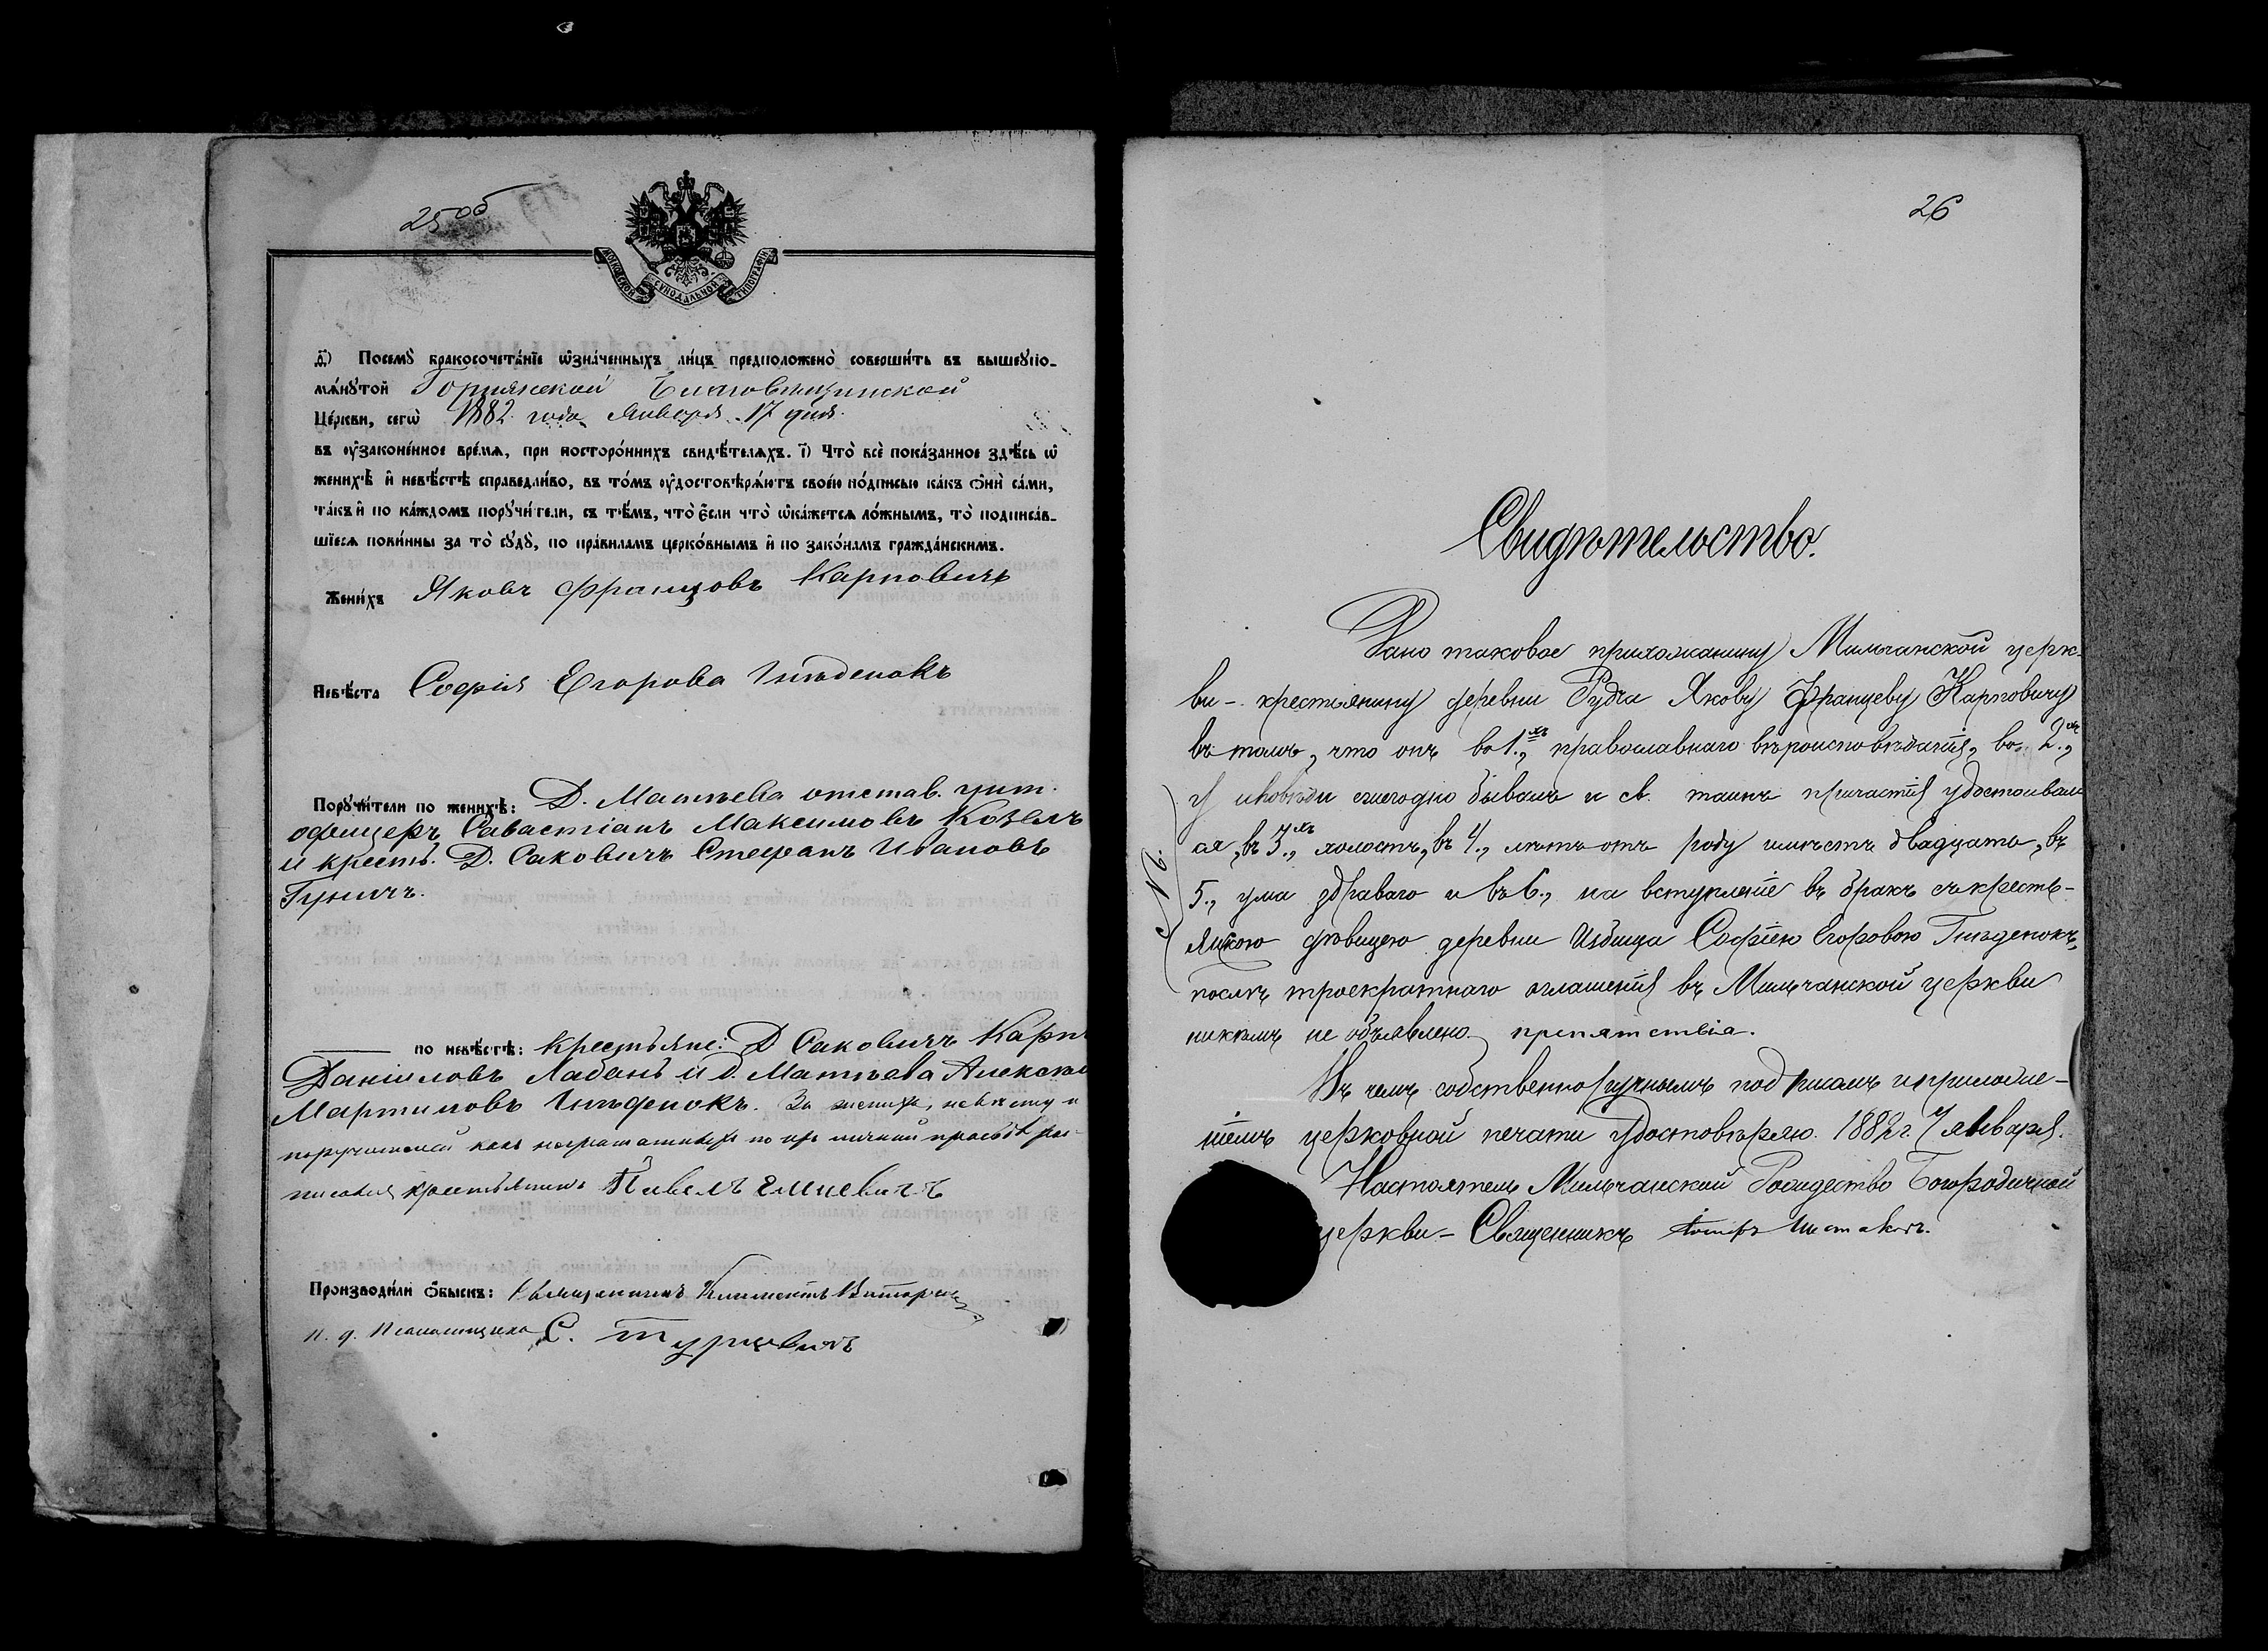 25об
МОСКОВСКОЙ СУНОДАЛЬНОЙ ТИПОГРАФІИ
Посемꙋ бракосочета́нїе ѡ҆зна́ченныхъ ли́цъ предположено̀ соверши́ть въ вышеꙋпо-
мѧ́нꙋтой Горняжской Благовѣщинской
Це́ркви, сегѡ̀ 1882 года Января 17 дня.
въ ᲂу҆законе́нное вре́мѧ, при посторо́ннихъ свидѣ́телѧхъ. і҃) Что̀ всѐ пока́занное здѣ́сь ѡ҆
женихѣ̀ и҆ невѣ́стѣ справедли́во, въ то́мъ ᲂу҆достовѣрѧ́ютъ свое́ю по́дписью ка́къ ѻ҆нѝ са́ми,
та́къ и҆ по ка́ждомъ порꙋчи́тели, съ тѣ́мъ, что̀ є҆́сли что̀ ѡ҆ка́жетсѧ ло́жнымъ, то̀ подписа́в-
шїесѧ пови́нны за то̀ сꙋдꙋ̀, по пра́виламъ церко́внымъ и҆ по зако́намъ гражда́нскимъ.
Жени́хъ Яковъ Францовъ Карповичъ
Невѣ́ста Софія Егорова Гнѣденокъ
Порꙋчи́тели по женихѣ̀: Д. Матѣева отстав. унт.
офицеръ Савастіанъ Максимовъ Козелъ
и крестъ. Д. Саковичъ Стефанъ Ивановъ
Гуничъ.
по невѣ́стѣ: Крестьяне: Д Саковичъ Карпъ
Даніиловъ Лабанъ и д. Матѣева Алексѣй
Мартиновъ Гнѣденокъ. За жениха, невѣсту и
поручителей какъ неграматныхъ по ихъ личной просьбѣ рос-
писался крестьянинъ Павелъ
Производи́ли ѻ҆́быскъ: Священникъ Климентъ
и. д. Псаломщика С. Турцевичъ
26
Свидѣтельство.
Дано таковое прихожанину Мильчанской церк-
ви - крестьянину деревни Рудня Якову Францеву Карповичу
въ томъ, что онъ во 1.хъ, православнаго вѣроисповѣданія, во 2.хъ,
У исповѣди ежегодно бывалъ и св. таинъ причастія удостоивал
ся, въ 3.хъ, холостъ, въ 4., лѣтъ отъ роду имѣетъ двадцать, въ
5., ума здраваго и въ 6., на вступленіе въ бракъ съ кресть-
янкою дѣвицею деревни Избища Софіею Егоровою Гнѣденокъ,
послѣ троекратнаго оглашенія въ Мильчанской церкви
никѣмъ не объявлено препятствія.
Въ чемъ собственноручнымъ подписомъ и приложе-
ніемъ церковной печати удостовѣряю. 1882 г. 7 января.
Настоятель Мильчанской Рождество Богородичной
церкви - Священникъ